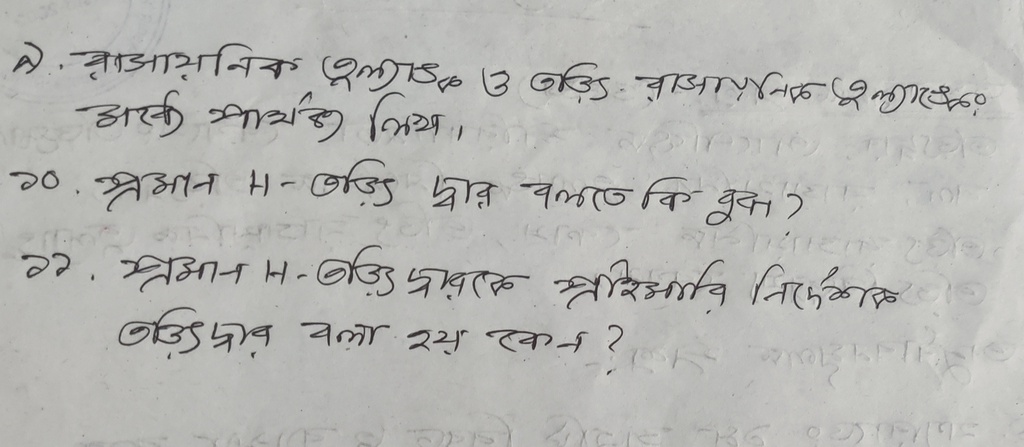 ৯. রাসায়নিক তুল্যাঙ্ক ও তড়িৎ রাসায়নিক তুল্যাঙ্কের
মধ্যে পার্থক্য লিখ।
১০. প্রমান H - তড়িৎ দ্বার বলতে কি বুঝ?
১১. প্রমান H - তড়িৎ দ্বারকে প্রাইমারি নির্দেশক
তড়িৎদ্বার বলা হয় কেন?